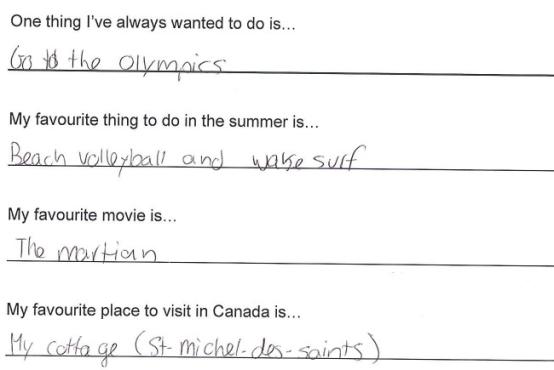 One thing I've always wanted to do is...
Go to the olympics
My favourite thing to do in the summer is...
Beach volleyball and wake surf
My favourite movie is...
The martian
My favourite place to visit in Canada is...
My cottage (St-michel-des-saints)